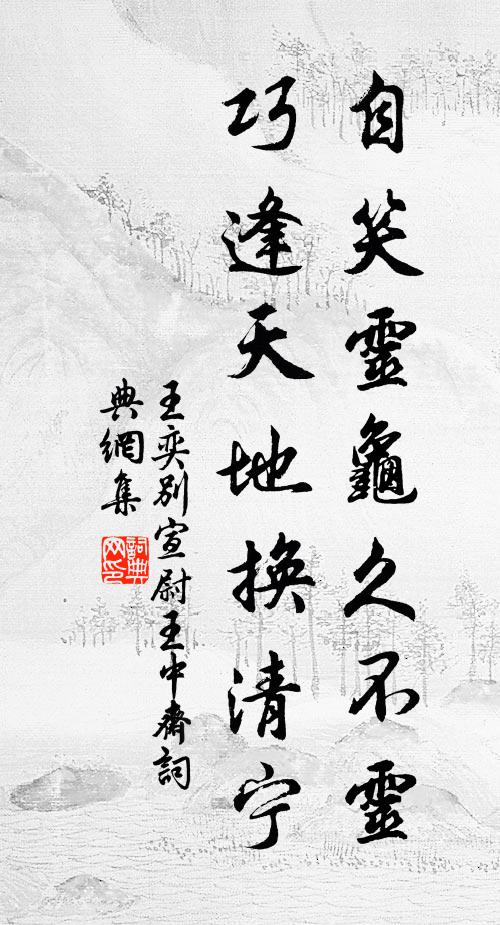 自笑靈龜久不靈
巧逢天地換清宁
王奕别宣尉王中齋詞
典網集
詞典
网印